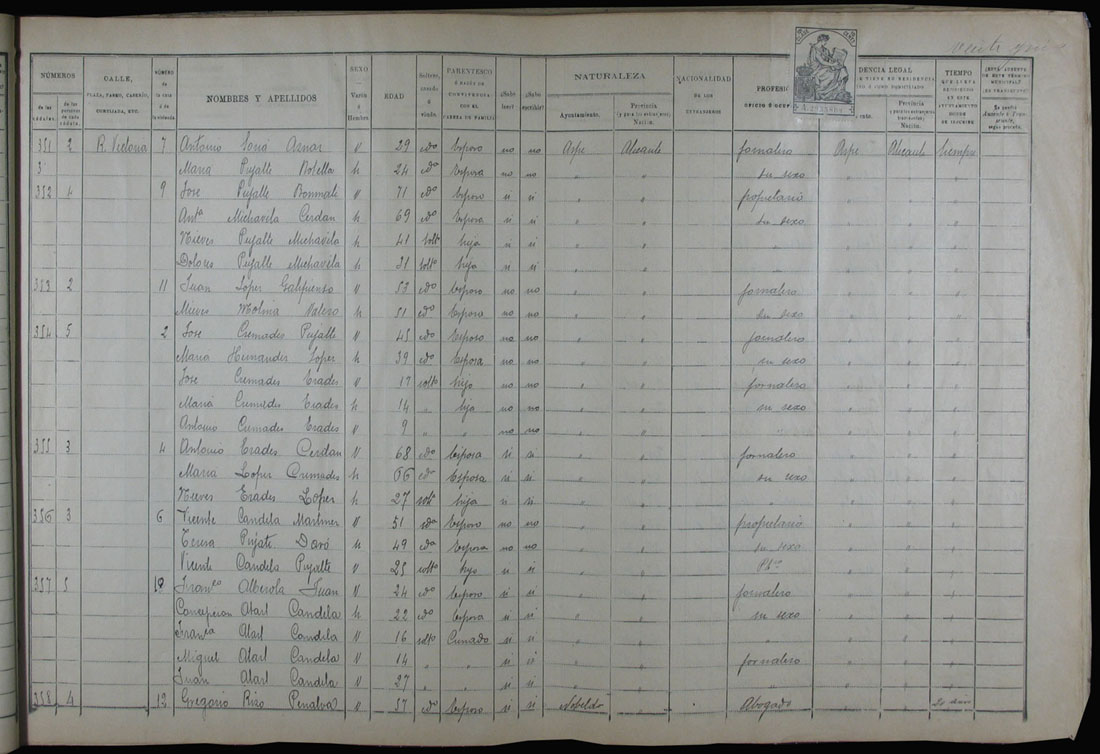 NÚMEROS
de las cédulas.
de las personas de cada cédula.
CALLE,
PLAZA, PASEO, CASERÍO,
CORTIJADA, ETC.
NÚMERO
de la casa ó de la vivienda
NOMBRES Y APELLIDOS
SEXO
Varón ó Hembra
EDAD
Soltero, casado ó viudo
PARENTESCO
Ó RAZÓN DE CONVIVENCIA CON EL CABEZA DE FAMILIA
¿Sabe leer?
¿Sabe escribir?
NATURALEZA
Ayuntamiento.
Provincia
Nación.
NACIONALIDAD
DE LOS EXTRANJEROS
PROFESI
OFICIO Ó OCUP
DENCIA LEGAL
Provincia
Nación.
TIEMPO
QUE LLEVA DE RESIDENCIA EN ESTE AYUNTAMIENTO
351 2 R. Victoria 7 Antonio Soria Aznar V 29 cdo Esposo no no Aspe Alicante Jornalero Aspe Alicante Siempre
3 Maria Pujalte Botella h 24 cdo Esposa no no " " su sexo " " "
352 4 9 Jose Pujalte Bonmati V 71 cdo Esposo si si " " propietario " " "
Antª Michavila Cerdan h 69 cdo Esposa si si " " su sexo " " "
Nieves Pujalte Michavila h 41 solt hija si si " " " " " "
Dolores Pujalte Michavila h 31 solt hija si si " " " " " "
353 2 11 Juan Lopez Galifienso V 53 cdo Esposo no no " " Jornalero " " "
Nieves Molina Valero h 51 cdo Esposa no no " " su sexo " " "
354 5 2 Jose Cremades Pujalte V 45 cdo Esposo no no " " Jornalero " " "
Maria Hernandez Lopez h 39 cdo Esposa no no " " su sexo " " "
Jose Cremades Erades V 17 solto hijo no no " " Jornalero " " "
Maria Cremades Erades h 14 " hija no no " " su sexo " " "
Antonio Cremades Erades V 9 " " no no " " " " "
355 3 4 Antonio Erades Cerdan V 68 cdo Esposo si si " " Jornalero " " "
Maria Lopez Cremades h 66 cdo Esposa si si " " su sexo " " "
Nieves Erades Lopez h 27 solt hija si si " " " " " "
356 3 6 Vicente Candela Martinez V 51 cdo Esposo no no " " propietario " " "
Teresa Pujalte Davó h 49 cdo Esposa no no " " su sexo " " "
Vicente Candela Pujalte V 25 solto hijo si si " " " " "
357 5 10 Franco Alberola Juan V 24 cdo Esposo si si " " Jornalero " " "
Concepcion Alarl Candela h 22 cdo Esposa si si " " su sexo " " "
Franco Alarl Candela V 16 solto Cuñado si si " " " " " "
Miguel Alarl Candela V 14 " " si si " " Jornalero " " "
Juan Alarl Candela V 27 " " si si " " " " " "
358 4 12 Gregorio Rizo Penalva V 37 cdo Esposo si si Nobelda " Abogado " "